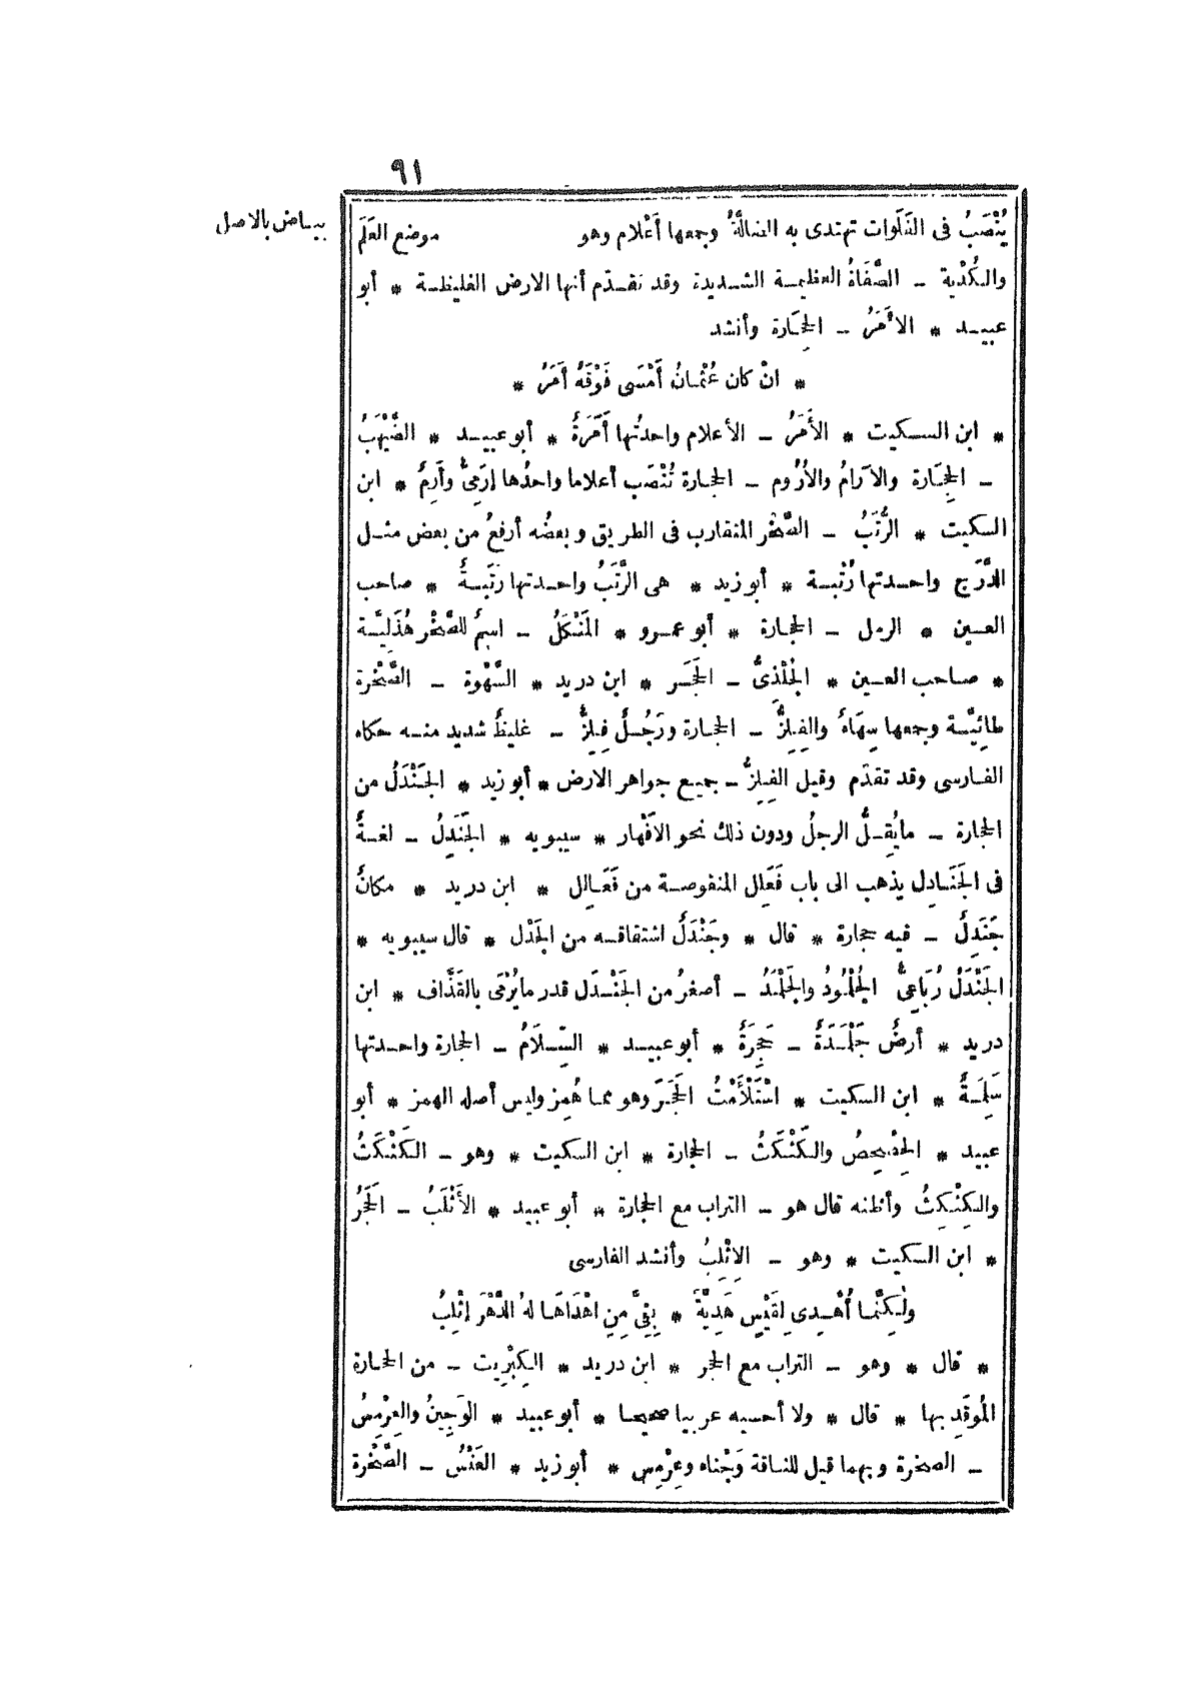 ٩١
يُنْصَبُ فى الفَلَوات تهتدى به الضالَّةُ وجمعها أَعْلام وهو موضع العَلَم
بياض بالاصل
والكُدْية ـ الصَّفَاةُ العظيمة الشديدة وقد تقدّم أنها الارض الغليظة * أبو
عبيد * الأَمَرُ ـ الحِجَارة وأنشد
* انْ كان عُثْمانُ أَمْسَى فَوْقَهُ أمَرُ *
* ابن السكيت * الأَمَرُ ـ الأعلام واحدتُها أَمَرَةٌ * أبو عبيد * الضَّيْهَبُ
ـ الحِجَارة والآرامُ والأُرُوم ـ الحجارة تُنْصَب أعلاما واحدُها إرَمِىٌّ وأَرِمٌ * ابن
السكيت * الرُّتَبُ ـ الصَّخْر المتقارب فى الطريق وبعضُه أرفعُ من بعض مثل
الدَّرَج واحدتها رُتْبة * أبو زيد * هى الرَّتَبُ واحدتها رَتَبةٌ * صاحب
العين * الرمل ـ الحجارة * أبو عمرو * المَنْكَلُ ـ اسمٌ للصَّخْر هُذَلِيَّة
* صاحب العين * الجُلْذِىُّ ـ الحَجَر * ابن دريد * السَّهْوة ـ الصَّخْرة
طائِيَّة وجمعها سِهَاءٌ والفِلِزُّ ـ الحجارة ورَجُلٌ فِلِزٌّ ـ غليظٌ شديد منه حكاه
الفارسى وقد تقدّم وقيل الفِلِزُّ ـ جميع جواهر الارض * أبو زيد * الجَنْدَلُ من
الحجارة ـ ما يُقِلُّ الرجلُ ودون ذلك نحو الأَفْهار * سيبويه * الجَنَدِلُ ـ لغةٌ
فى الجَنَادِل يذهب الى باب فَعَالِل المنقوصة من فَعَالِل * ابن دريد * مكانٌ
جَنَدِلٌ ـ فيه حجارة * قال * وجَنْدَلٌ اشتقاقه من الجَدْل * قال سيبويه *
الجَنْدَلُ رُبَاعِىٌّ الجُلْمُودُ والجَلْمَدُ ـ أصغرُ من الجَنْدَل قدر ما يُرْمَى بالقَذَّاف * ابن
دريد * أرضٌ جَلْمَدَةٌ ـ حَجِرَةٌ * أبو عبيد * السِّلَامُ ـ الحجارة واحدتها
سَلِمَةٌ * ابن السكيت * اسْتَلْأَمْتُ الحَجَرَ وهو مما هُمِز وليس أصله الهمز * أبو
عبيد * الحِصْحِصُ والكَثْكَثُ ـ الحجارة * ابن السكيت * وهو ـ الكَثْكَثُ
والكِثْكِثُ وأظنه قال هو ـ التراب مع الحجارة * أبو عبيد * الأَثْلَبُ ـ الحَجَرُ
* ابن السكيت * وهو ـ الإِثْلِبُ وأنشد الفارسى
ولٰكِنَّما أُهْدِى لِقَيْسٍ هَدِيَّةً * بِفِىَّ مِنِ اهْدَاهَا لَهُ الدَّهْرَ إثْلِبُ
* قال * وهو ـ التراب مع الحجر * ابن دريد * الكِبْرِيت ـ من الحجارة
المُوقَد بها * قال * ولا أحسبه عربيا صحيحا * أبو عبيد * الوَجِينُ والعِرْمِسُ
ـ الصخرة وبهما قيل للناقة وَجْناء وعِرْمِس * أبو زيد * العَنْسُ ـ الصَّخْرة